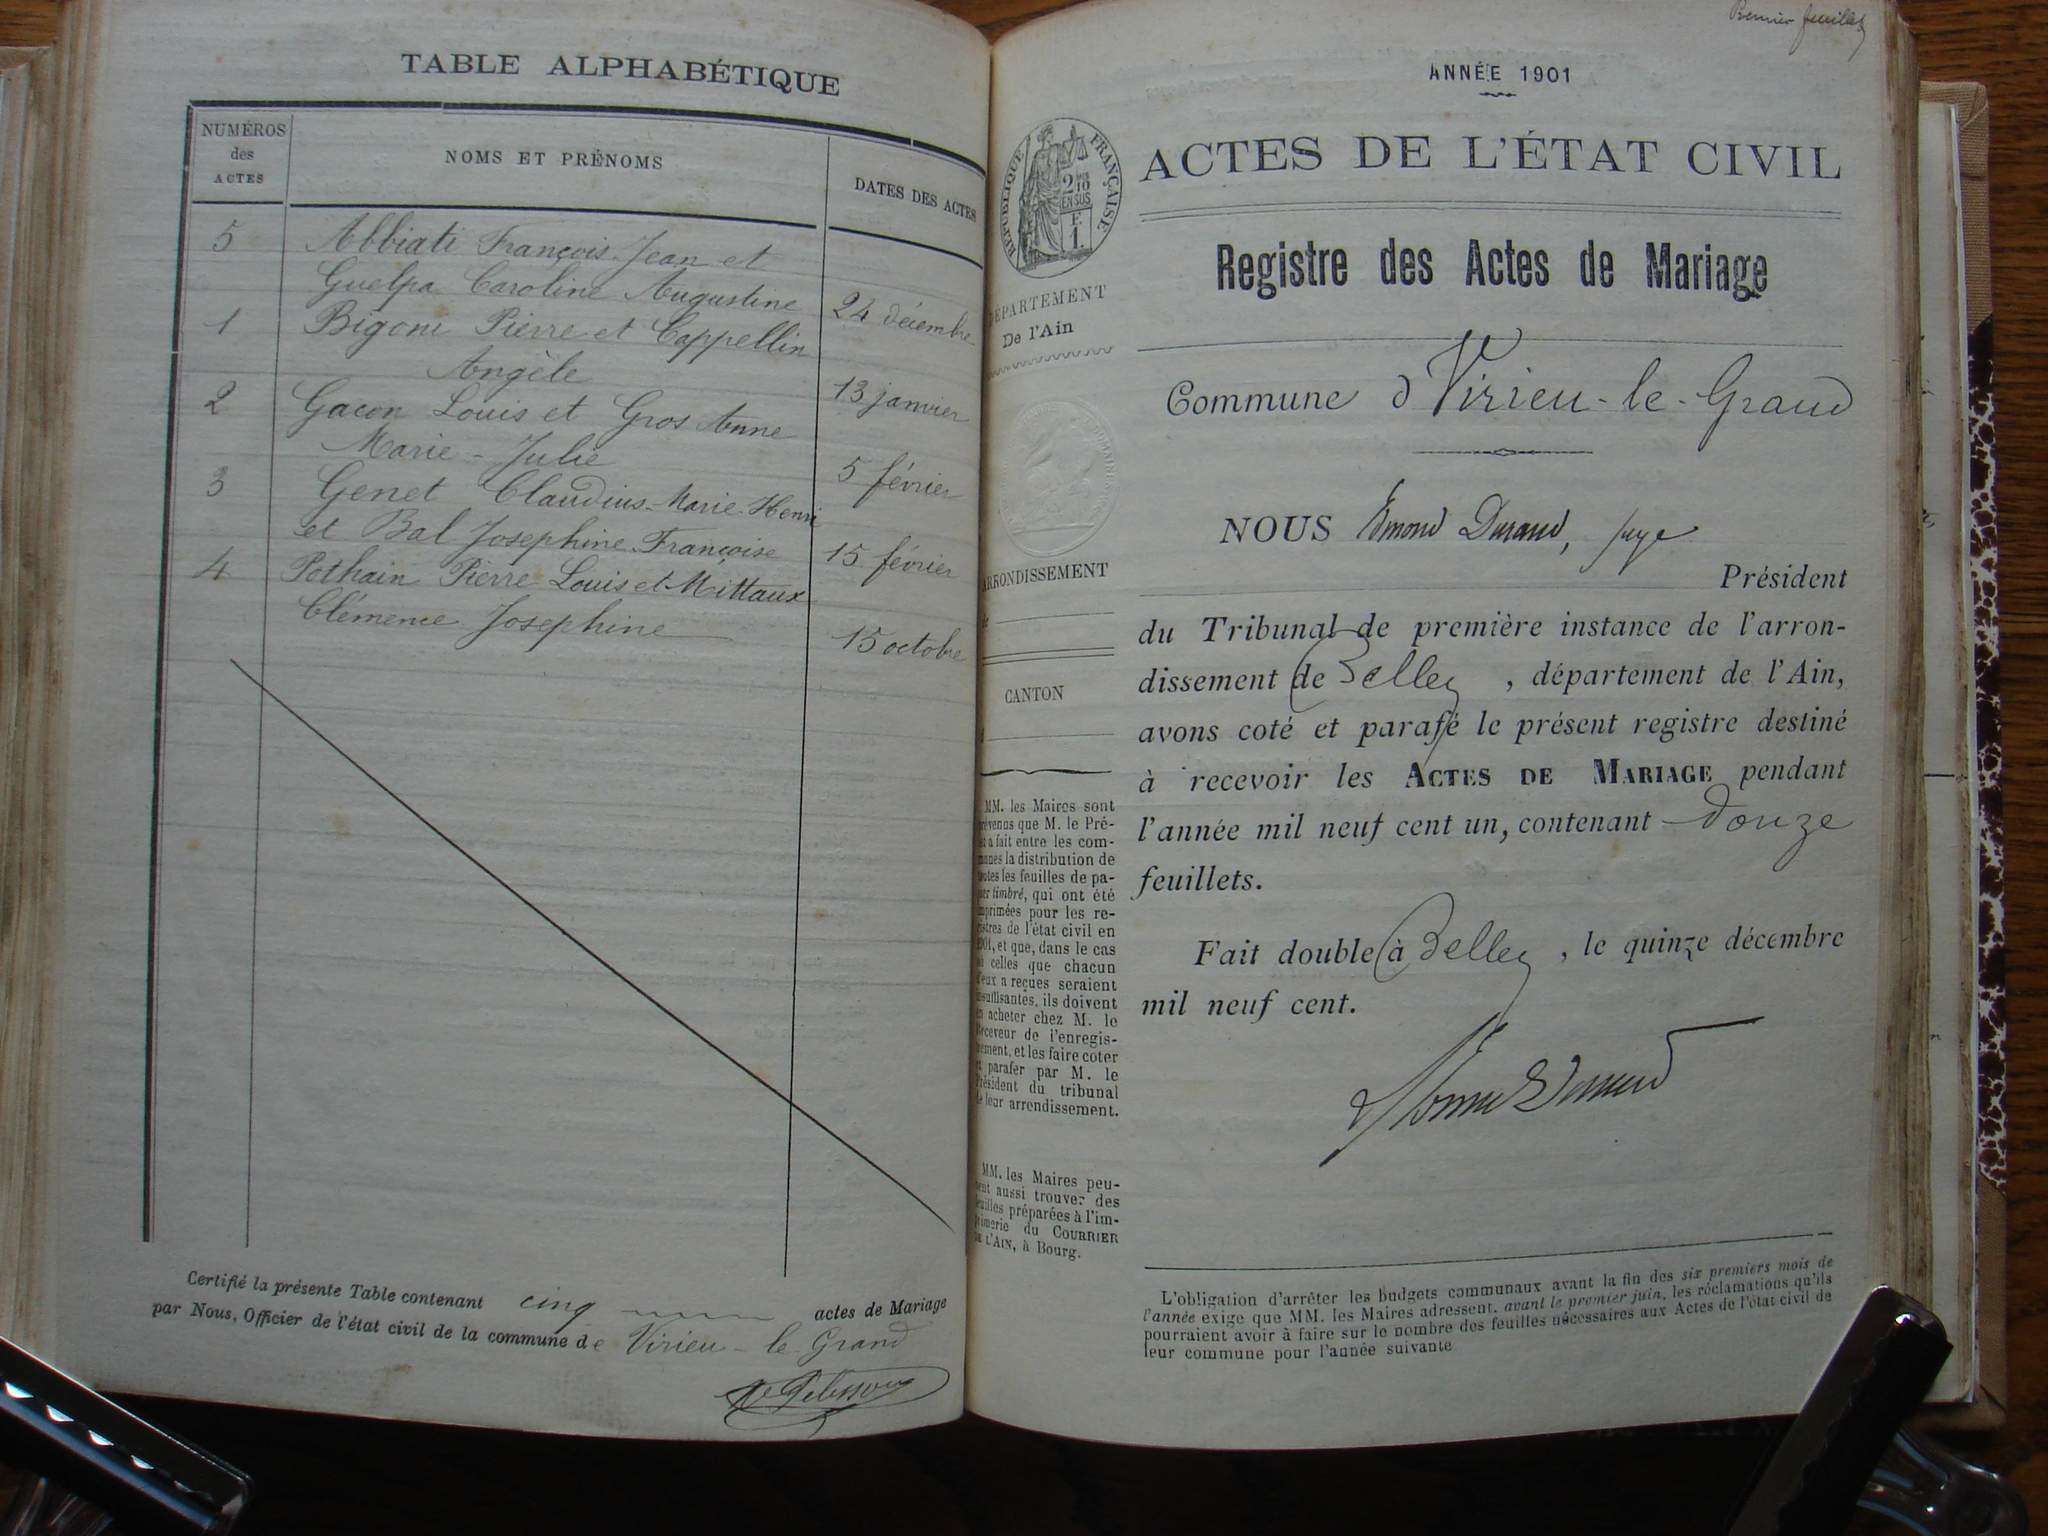 TABLE ALPHABÉTIQUE
NUMÉROS
des
ACTES
NOMS ET PRÉNOMS
DATES DES ACTES
5 Abbiati François Jean et
Guelpa Caroline Augustine 24 décembre
1 Bigoni Pierre et Cappellin
Angèle 13 janvier
2 Gacon Louis et Gros Anne
Marie-Julie 5 février
3 Genet Claudius-Marie-Henri
et Bal Josephine Françoise 15 février
4 Pothain Pierre Louis et Mittaux
Clémence Josephine 15 octobre
Certifié la présente Table contenant cinq actes de Mariage
par Nous, Officier de l'état civil de la commune de Virieu-le Grand
Premier feuillet
ANNÉE 1901
RÉPUBLIQUE FRANÇAISE
2/10
EN SUS
F.
1.
ACTES DE L'ÉTAT CIVIL
Registre des Actes de Mariage
DÉPARTEMENT
De l'Ain
Commune d Virieu-le-Grand
NOUS Edmond Durand, juge
Président
du Tribunal de première instance de l'arron-
dissement de Belley, département de l'Ain,
avons coté et parafé le présent registre destiné
à recevoir les ACTES DE MARIAGE pendant
l'année mil neuf cent un, contenant douze
feuillets.
Fait double à Belley, le quinze décembre
mil neuf cent.
ARRONDISSEMENT
CANTON
MM. les Maires sont
prévenus que M. le Pré-
fet a fait entre les com-
munes la distribution de
toutes les feuilles de pa-
pier timbré, qui ont été
imprimées pour les re-
gistres de l'état civil en
1901, et que, dans le cas
où celles que chacun
d'eux a reçues seraient
insuffisantes, ils doivent
en acheter chez M. le
Receveur de l'enregis-
trement, et les faire coter
et parafer par M. le
Président du tribunal
de leur arrondissement.
MM. les Maires peu-
vent aussi trouver des
feuilles préparées à l'im-
primerie du COURRIER
DE L'AIN, à Bourg.
L'obligation d'arrêter les budgets communaux avant la fin des six premiers mois de
l'année exige que MM. les Maires adressent, avant le premier juin, les réclamations qu'ils
pourraient avoir à faire sur le nombre des feuilles nécessaires aux Actes de l'état civil de
leur commune pour l'année suivante